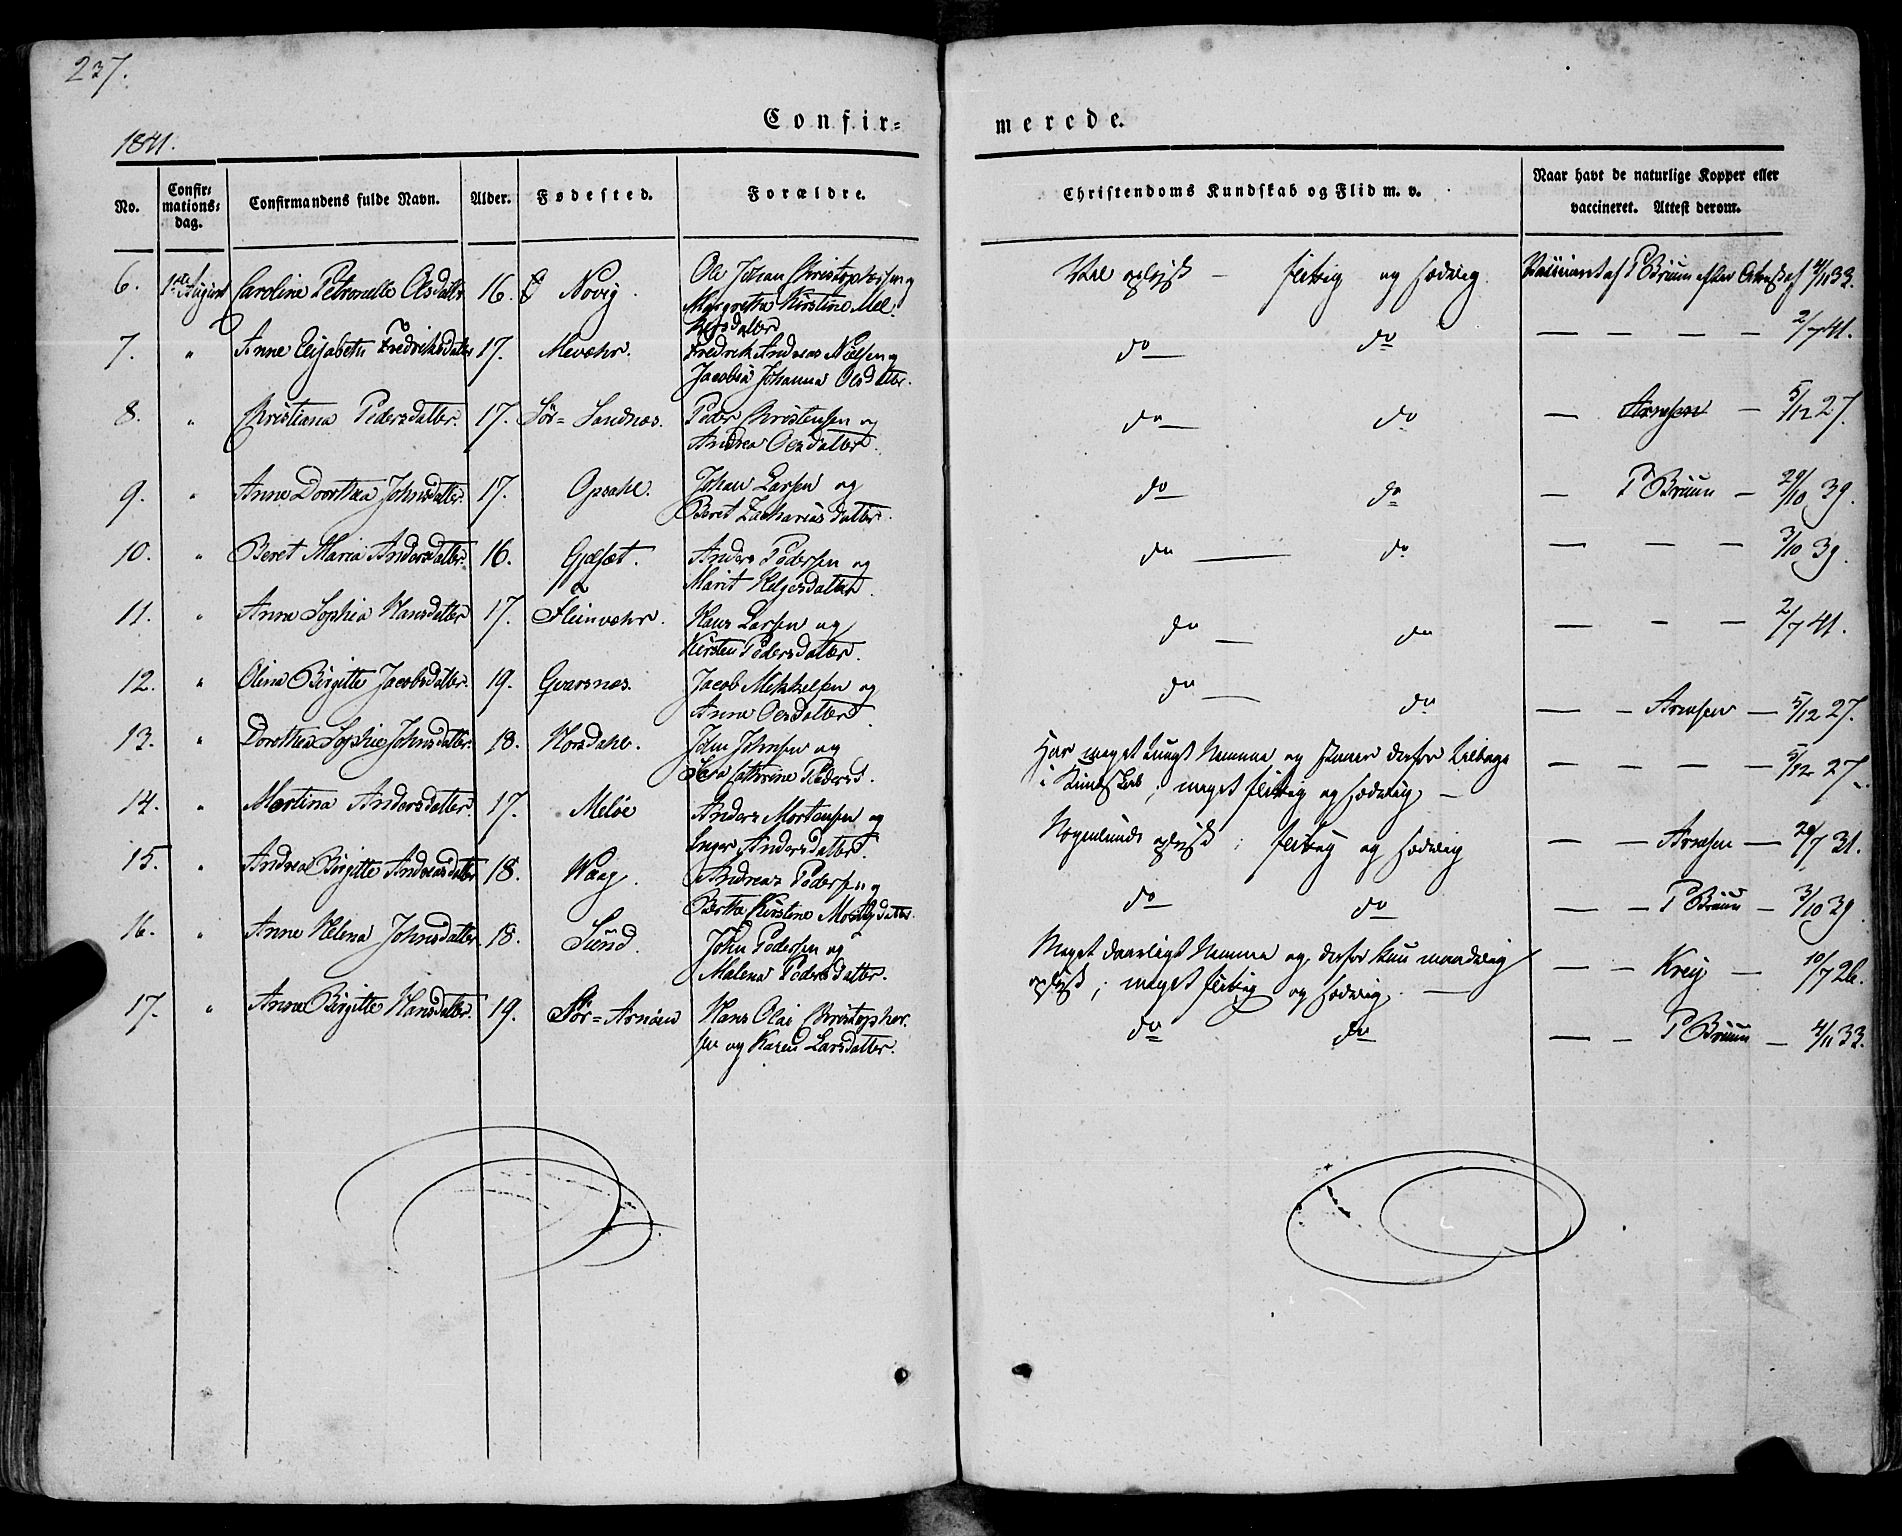 237.
Confir=
merede.
1841.
No.
Confir=
mations=
dag.
Confirmandens fulde Navn.
Alder.
Fødested.
Forældre.
Christendoms Kundskab og Flid m. v.
Naar havt de naturlige Kopper eller
vaccineret. Attest derom.
6. 1ste August Caroline Petronelle Olsdatter 16. Novig. Ole Johan Christophersen og
Margrethe Kirstine Mel-
kersdatter
Vel oplyst — flittig og sædelig. Vaccineret af P Bruun efter Attest af 4/11 33.
7. " Anne Elisabeth Fredriksdatter 17. Mevæhr. Fredrik Andreas Nielsen og
Jacobia Johanna Olsdatter.
do — do — — — — 2/7 41.
8. " Christiana Pedersdatter. 17. Sør=Sandnæs. Peder Christensen og
Andrea Olsdatter.
do — do — Arnesen — 5/12 27.
9. " Anne Dorthea Johnsdatter 17. Opsahl. Johan Larsen og
Beret Zachariasdatter.
do — do — P Bruun — 29/10 39.
10. " Beret Maria Andersdatter. 16. Gjæsæt. Anders Pedersen og
Marit Helgesdatter.
do — do — — — 3/10 39.
11. " Anne Sophia Hansdatter 17. Fleinvæhr. Hans Larsen og
Kirsten Pedersdatter.
do — do — — — 2/7 41.
12. " Olina Birgitte Jacobsdatter. 19. Qvarsnæs. Jacob Mikkelsen og
Anne Olsdatter.
do — do — — Arnesen — 5/12 27.
13. " Dorothea Sophie Johnsdatter. 18. Horsdahl. John Johnsen og
Cathrine Pedersd.
Har meget tungt Nemme og staaer derfor tilbage
i Kundskab; meget flittig og sædelig. —
— — — — 5/12 27.
14. " Martina Andersdatter. 17. Meløe Anders Mortensen og
Inger Andersdatter.
Nogenlunde oplyst; flittig og sædelig — — Arnesen — 20/7 31.
15. " Andrea Birgitte Andreasdatter 18. Waag. Andreas Pedersen og
Bertha Kirstine datter.
do do — — P Bruun — 3/10 39.
16. " Anne Helena Johnsdatter. 18. Sund. John Pedersen og
Malena Pedersdatter.
Meget daarligt Nemme og derfor kun maadelig
oplyst; meget flittig og sædelig. —
— — Krey — 10/7 26.
17. " Anne Birgitte Hansdatter. 19. Sør=Arnøen Hans Olai Christopher-
sen og Karen Larsdatter.
do do — — P Bruun — 4/11 33.